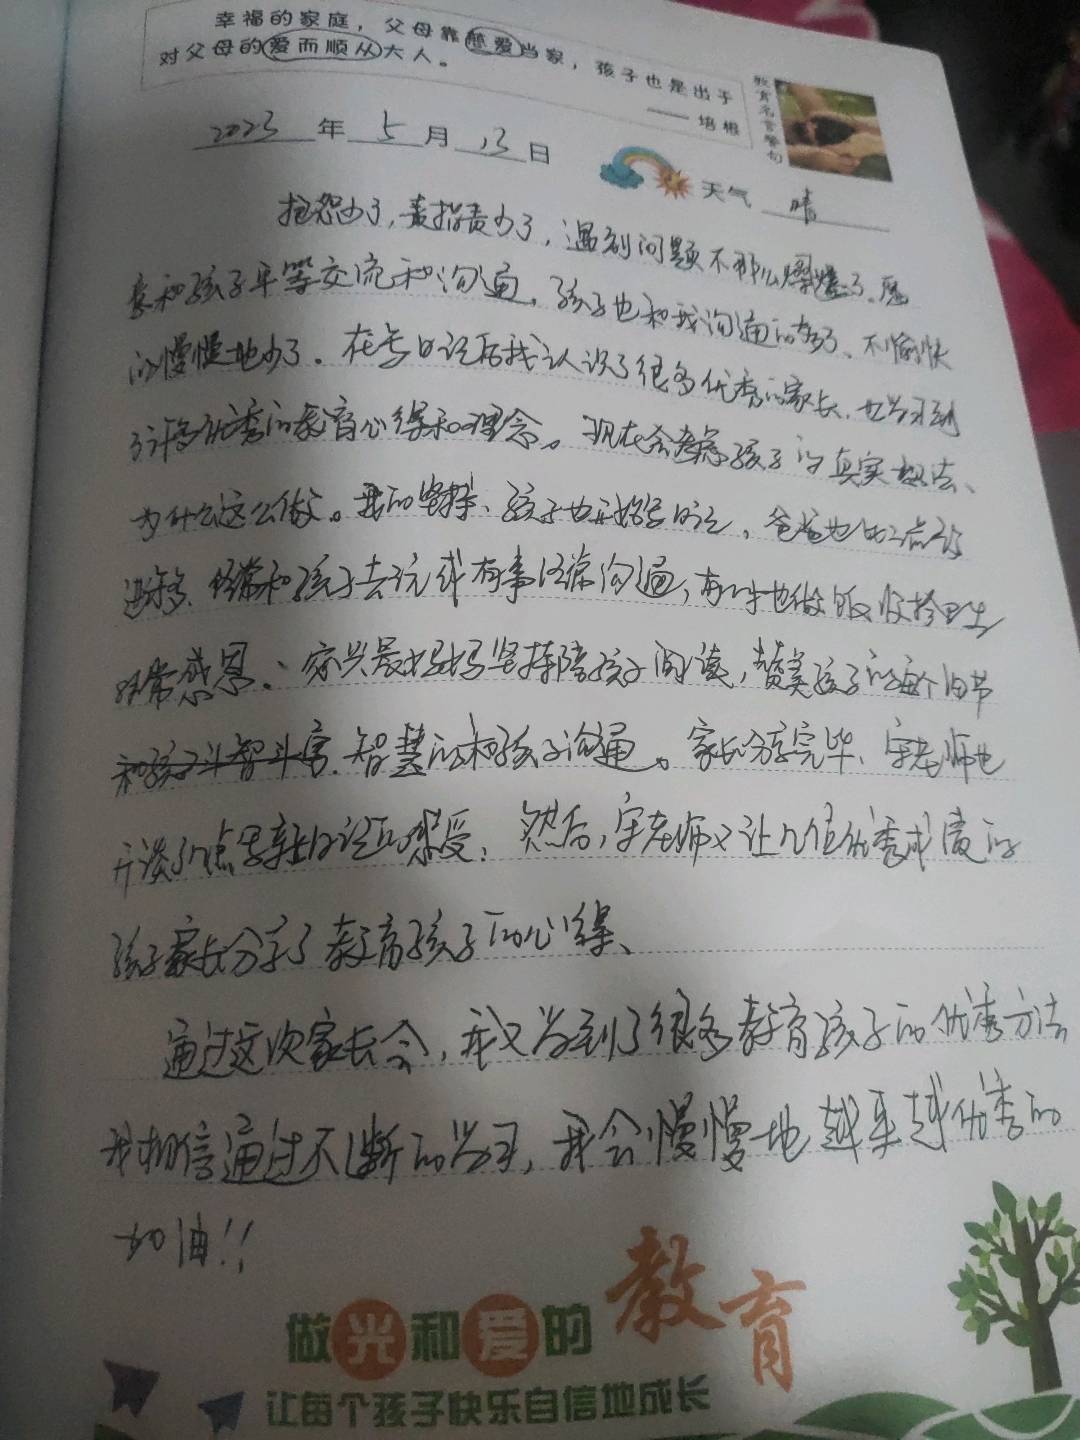 幸福的家庭，父母靠慈爱当家，孩子也是出于
对父母的爱而顺从大人。
——培根
教育名言警句
2023年5月13日
天气 晴
抱怨少了，责指责少了，遇到问题不那么爆燥了。愿
意和孩子平等交流和沟通，孩子也和我沟通的多了、不愉快
的慢慢地少了。在写日记后我认识了很多优秀的家长，也学习到
了许多优秀的教育心得和理念。现在会考虑孩子的真实想法、
为什么这么做。我的坚持、孩子也开始写日记，爸爸也比之前
进步多、经常和孩子去玩或有事经常沟通，有时也做饭收拾卫生
非常感恩。家兴晨妈妈坚持陪孩子阅读，赞美孩子的每个细节
和孩子斗智斗 智慧的和孩子沟通。家长分享完毕、宇老师也
谈了 点写 日记的感受，然后，宇老师又让几位优秀成 的
孩子家长分享了教育孩子的心得、
通过这次家长会，我又学到了很多教育孩子的优秀方法
我相信通过不断的学习，我会慢慢地越来越优秀的
加油！！
做光和爱的教育
让每个孩子快乐自信地成长